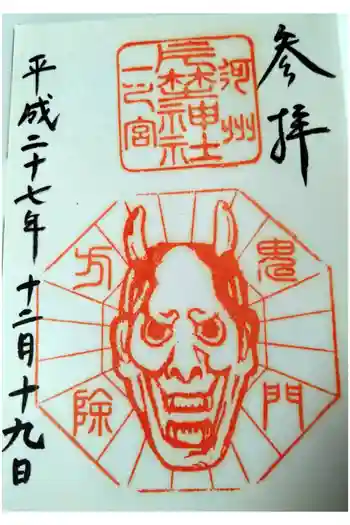 参拝
河州
片埜神社
一之宮
鬼門
方除
平成二十七年 十二月十九日